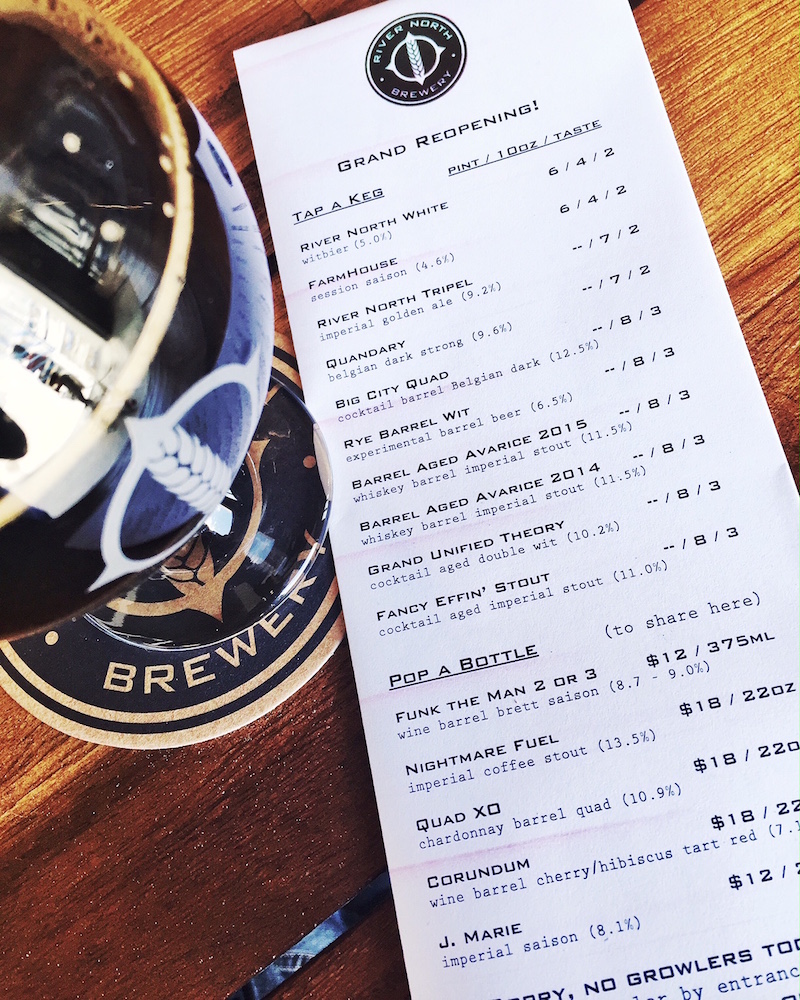 RIVER NORTH
BREWERY
GRAND REOPENING!
TAP A KEG
PINT / 10OZ / TASTE
RIVER NORTH WHITE 6 / 4 / 2
witbier (5.0%)
FARMHOUSE 6 / 4 / 2
session saison (4.6%)
RIVER NORTH TRIPEL -- / 7 / 2
imperial golden ale (9.2%)
QUANDARY -- / 7 / 2
belgian dark strong (9.6%)
BIG CITY QUAD -- / 8 / 3
cocktail barrel Belgian dark (12.5%)
RYE BARREL WIT -- / 8 / 3
experimental barrel beer (6.5%)
BARREL AGED AVARICE 2015 -- / 8 / 3
whiskey barrel imperial stout (11.5%)
BARREL AGED AVARICE 2014 -- / 8 / 3
whiskey barrel imperial stout (11.5%)
GRAND UNIFIED THEORY -- / 8 / 3
cocktail aged double wit (10.2%)
FANCY EFFIN' STOUT -- / 8 / 3
cocktail aged imperial stout (11.0%)
POP A BOTTLE (to share here)
FUNK THE MAN 2 OR 3 $12 / 375ML
wine barrel brett saison (8.7 - 9.0%)
NIGHTMARE FUEL $18 / 22OZ
imperial coffee stout (13.5%)
QUAD XO $18 / 22O
chardonnay barrel quad (10.9%)
CORUNDUM $18 / 22
wine barrel cherry/hibiscus tart red (7.1
J. MARIE $12 / 2
imperial saison (8.1%)
SORRY, NO GROWLERS TOD
by entranc
BREWERY